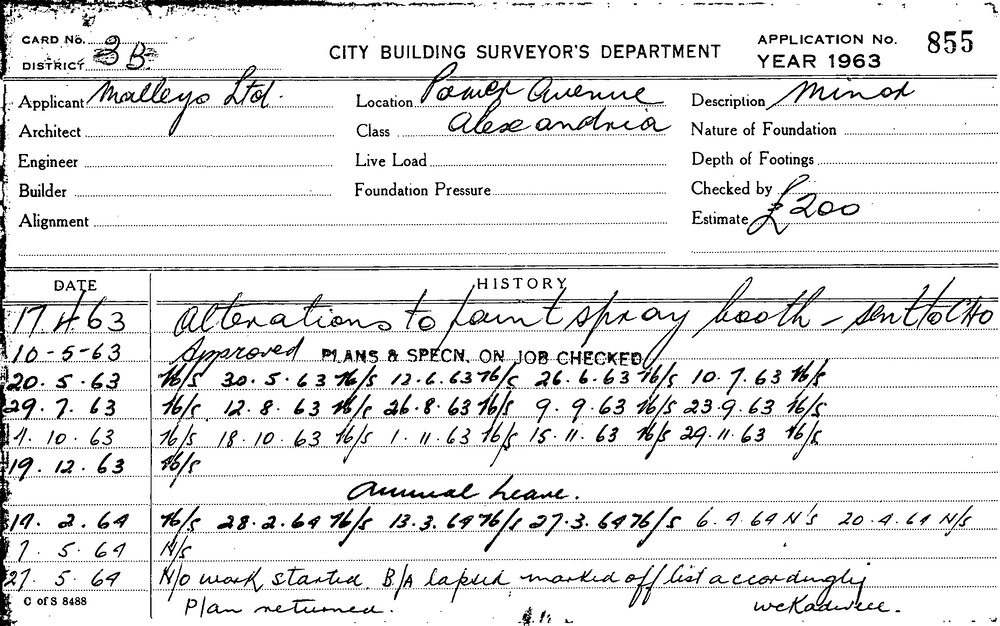 CARD No. 3B
DISTRICT
CITY BUILDING SURVEYOR'S DEPARTMENT
APPLICATION No. 855
YEAR 1963
Applicant Malleys Ltd.
Location Power Avenue
Description Minor
Architect
Class Alexandria
Nature of Foundation
Engineer
Live Load
Depth of Footings
Builder
Foundation Pressure
Checked by
Alignment
Estimate £200
DATE HISTORY
17.4.63 Alterations to paint spray booth - sent to CHO
10-5-63 Approved PLANS & SPECN. ON JOB CHECKED
20.5.63 N/S 30.5.63 N/S 12.6.63 N/S 26.6.63 N/S 10.7.63 N/S
29.7.63 N/S 12.8.63 N/S 26.8.63 N/S 9.9.63 N/S 23.9.63 N/S
4.10.63 N/S 18.10.63 N/S 1.11.63 N/S 15.11.63 N/S 29.11.63 N/S
19.12.63 N/S
Annual Leave.
14.2.64 N/S 28.2.64 N/S 13.3.64 N/S 27.3.64 N/S 6.4.64 N/S 20.4.64 N/S
7.5.64 N/S
27.5.64 N/o work started. B/A lapsed marked off list accordingly
C of S 8488
Plan returned.